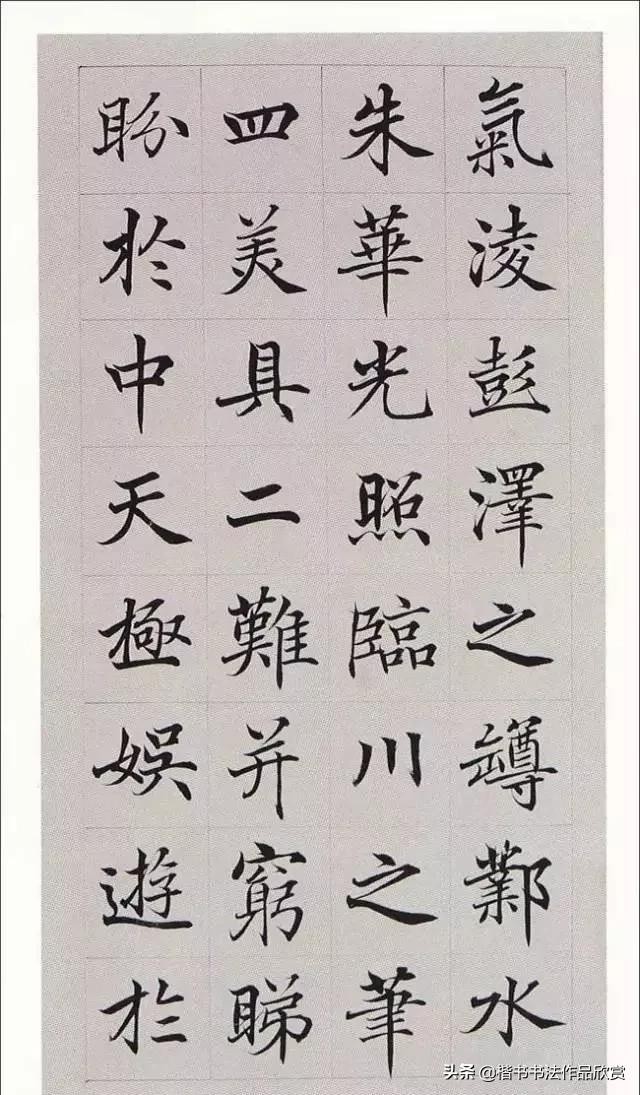 氣淩彭澤之罇鄴水
朱華光照臨川之筆
四美具二難并窮睇
眄於中天極娛遊於
头条 @楷书书法作品欣赏